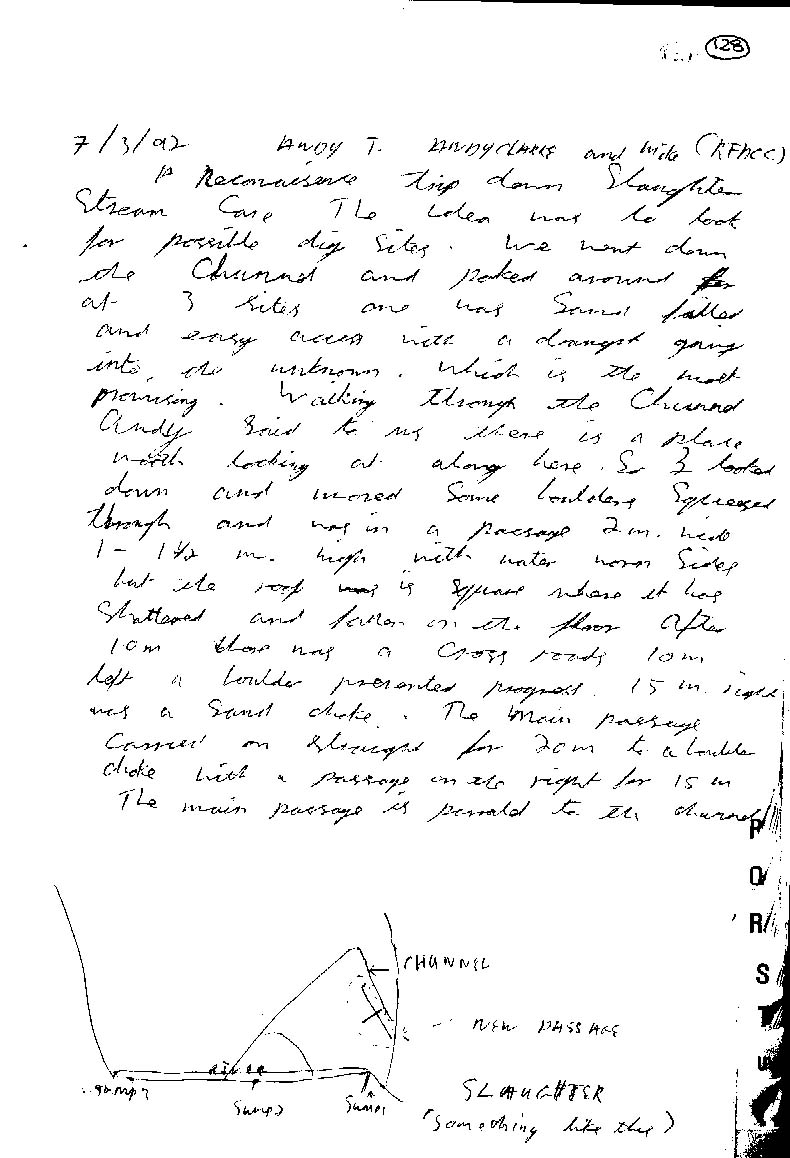 128
7/3/92 ANDY T. ANDY CLARKE and Mike (RFDCC)
A Reconaisence trip down Slaughter
Stream Cave The idea was to look
for possible dig sites. We went down
the Channel and poked around for
at 3 sites one was Sand filled
and easy access with a draught going
into the unknown. Which is the most
promising. Walking through the Channel
Andy Said to us there is a place
worth looking at along here. So I looked
down and moved Some boulders Squeezed
through and was in a passage 2m. wide
1 - 1 1/2 m. high with water worn Sides
but the roof was is Square where it has
Shattered and fallen on the floor After
10m there was a Cross roads 10m
left a boulder prevented progress. 15 m. right
was a Sand choke. The Main passage
Carried on Straight for 20m to a boulder
choke with a passage on the right for 15 m
The main passage is parralel to the channel
P
Q
R
S
T
U
CHUNNEL
NEW PASSAGE
RIVER
Sump2
Sump1
SLAUGHTER
(Something like this)